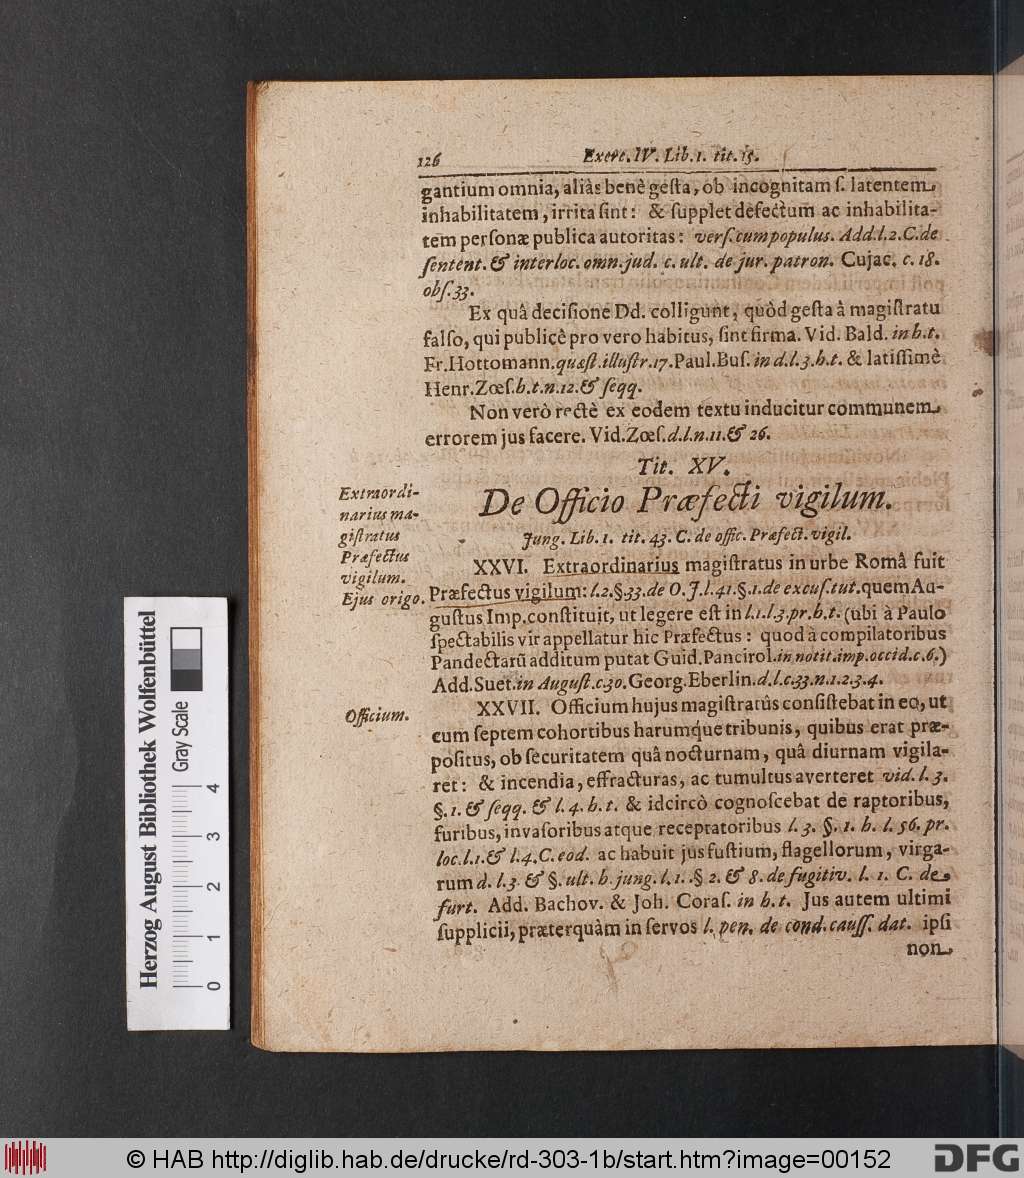 126
Exerc. IV. Lib. 1. tit. 15.
gantium omnia, aliàs benè geſta, ob incognitam ſ. latentem
inhabilitatem, irrita ſint: & ſupplet defectum ac inhabilita-
tem perſonæ publica autoritas: verſ. cum populus. Add. l. 2. C. de
ſentent. & interloc. omn. jud. c. ult. de jur. patron. Cujac. c. 18.
obſ. 33.
Ex quâ deciſione Dd. colligunt, quòd geſta à magiſtratu
falſo, qui publicè pro vero habitus, ſint firma. Vid. Bald. in h. t.
Fr. Hottomann. quæſt. illuſtr. 17. Paul. Buſ. in d. l. 3. h. t. & latiſſimè
Henr. Zœſ. h. t. n. 12. & ſeqq.
Non verò rectè ex eodem textu inducitur communem
errorem jus facere. Vid. Zœſ. d. l. n. 11. & 26.
Tit. XV.
De Officio Præfecti vigilum.
Jung. Lib. 1. tit. 43. C. de offic. Præfect. vigil.
Extraordi-
narius ma-
giſtratus
Præfectus
vigilum.
Ejus origo.
XXVI. Extraordinarius magiſtratus in urbe Româ fuit
Præfectus vigilum: l. 2. §. 33. de O. J. l. 41. §. 1. de excuſ. tut. quem Au-
guſtus Imp. conſtituit, ut legere eſt in l. 1. l. 3. pr. h. t. (ubi à Paulo
ſpectabilis vir appellatur hic Præfectus: quod à compilatoribus
Pandectarũ additum putat Guid. Pancirol. in notit. imp. occid. c. 6.)
Add. Suet. in Auguſt. c. 30. Georg. Eberlin. d. l. c. 33. n. 1. 2. 3. 4.
Officium.
XXVII. Officium hujus magiſtratûs conſiſtebat in eo, ut
cum ſeptem cohortibus harumque tribunis, quibus erat præ-
poſitus, ob ſecuritatem quâ nocturnam, quâ diurnam vigila-
ret: & incendia, effracturas, ac tumultus averteret vid. l. 3.
§. 1. & ſeqq. & l. 4. h. t. & idcircò cognoſcebat de raptoribus,
furibus, invaſoribus atque receptatoribus l. 3. §. 1. h. l. 56. pr.
loc. l. 1. & l. 4. C. eod. ac habuit jus fuſtium, flagellorum, virga-
rum d. l. 3. & §. ult. h. jung. l. 1. §. 2. & 8. de fugitiv. l. 1. C. de
furt. Add. Bachov. & Joh. Coraſ. in h. t. Jus autem ultimi
ſupplicii, præterquàm in ſervos l. pen. de cond. cauſſ. dat. ipſi
non
Herzog August Bibliothek Wolfenbüttel
Gray Scale
0 1 2 3 4
© HAB http://diglib.hab.de/drucke/rd-303-1b/start.htm?image=00152
DFG